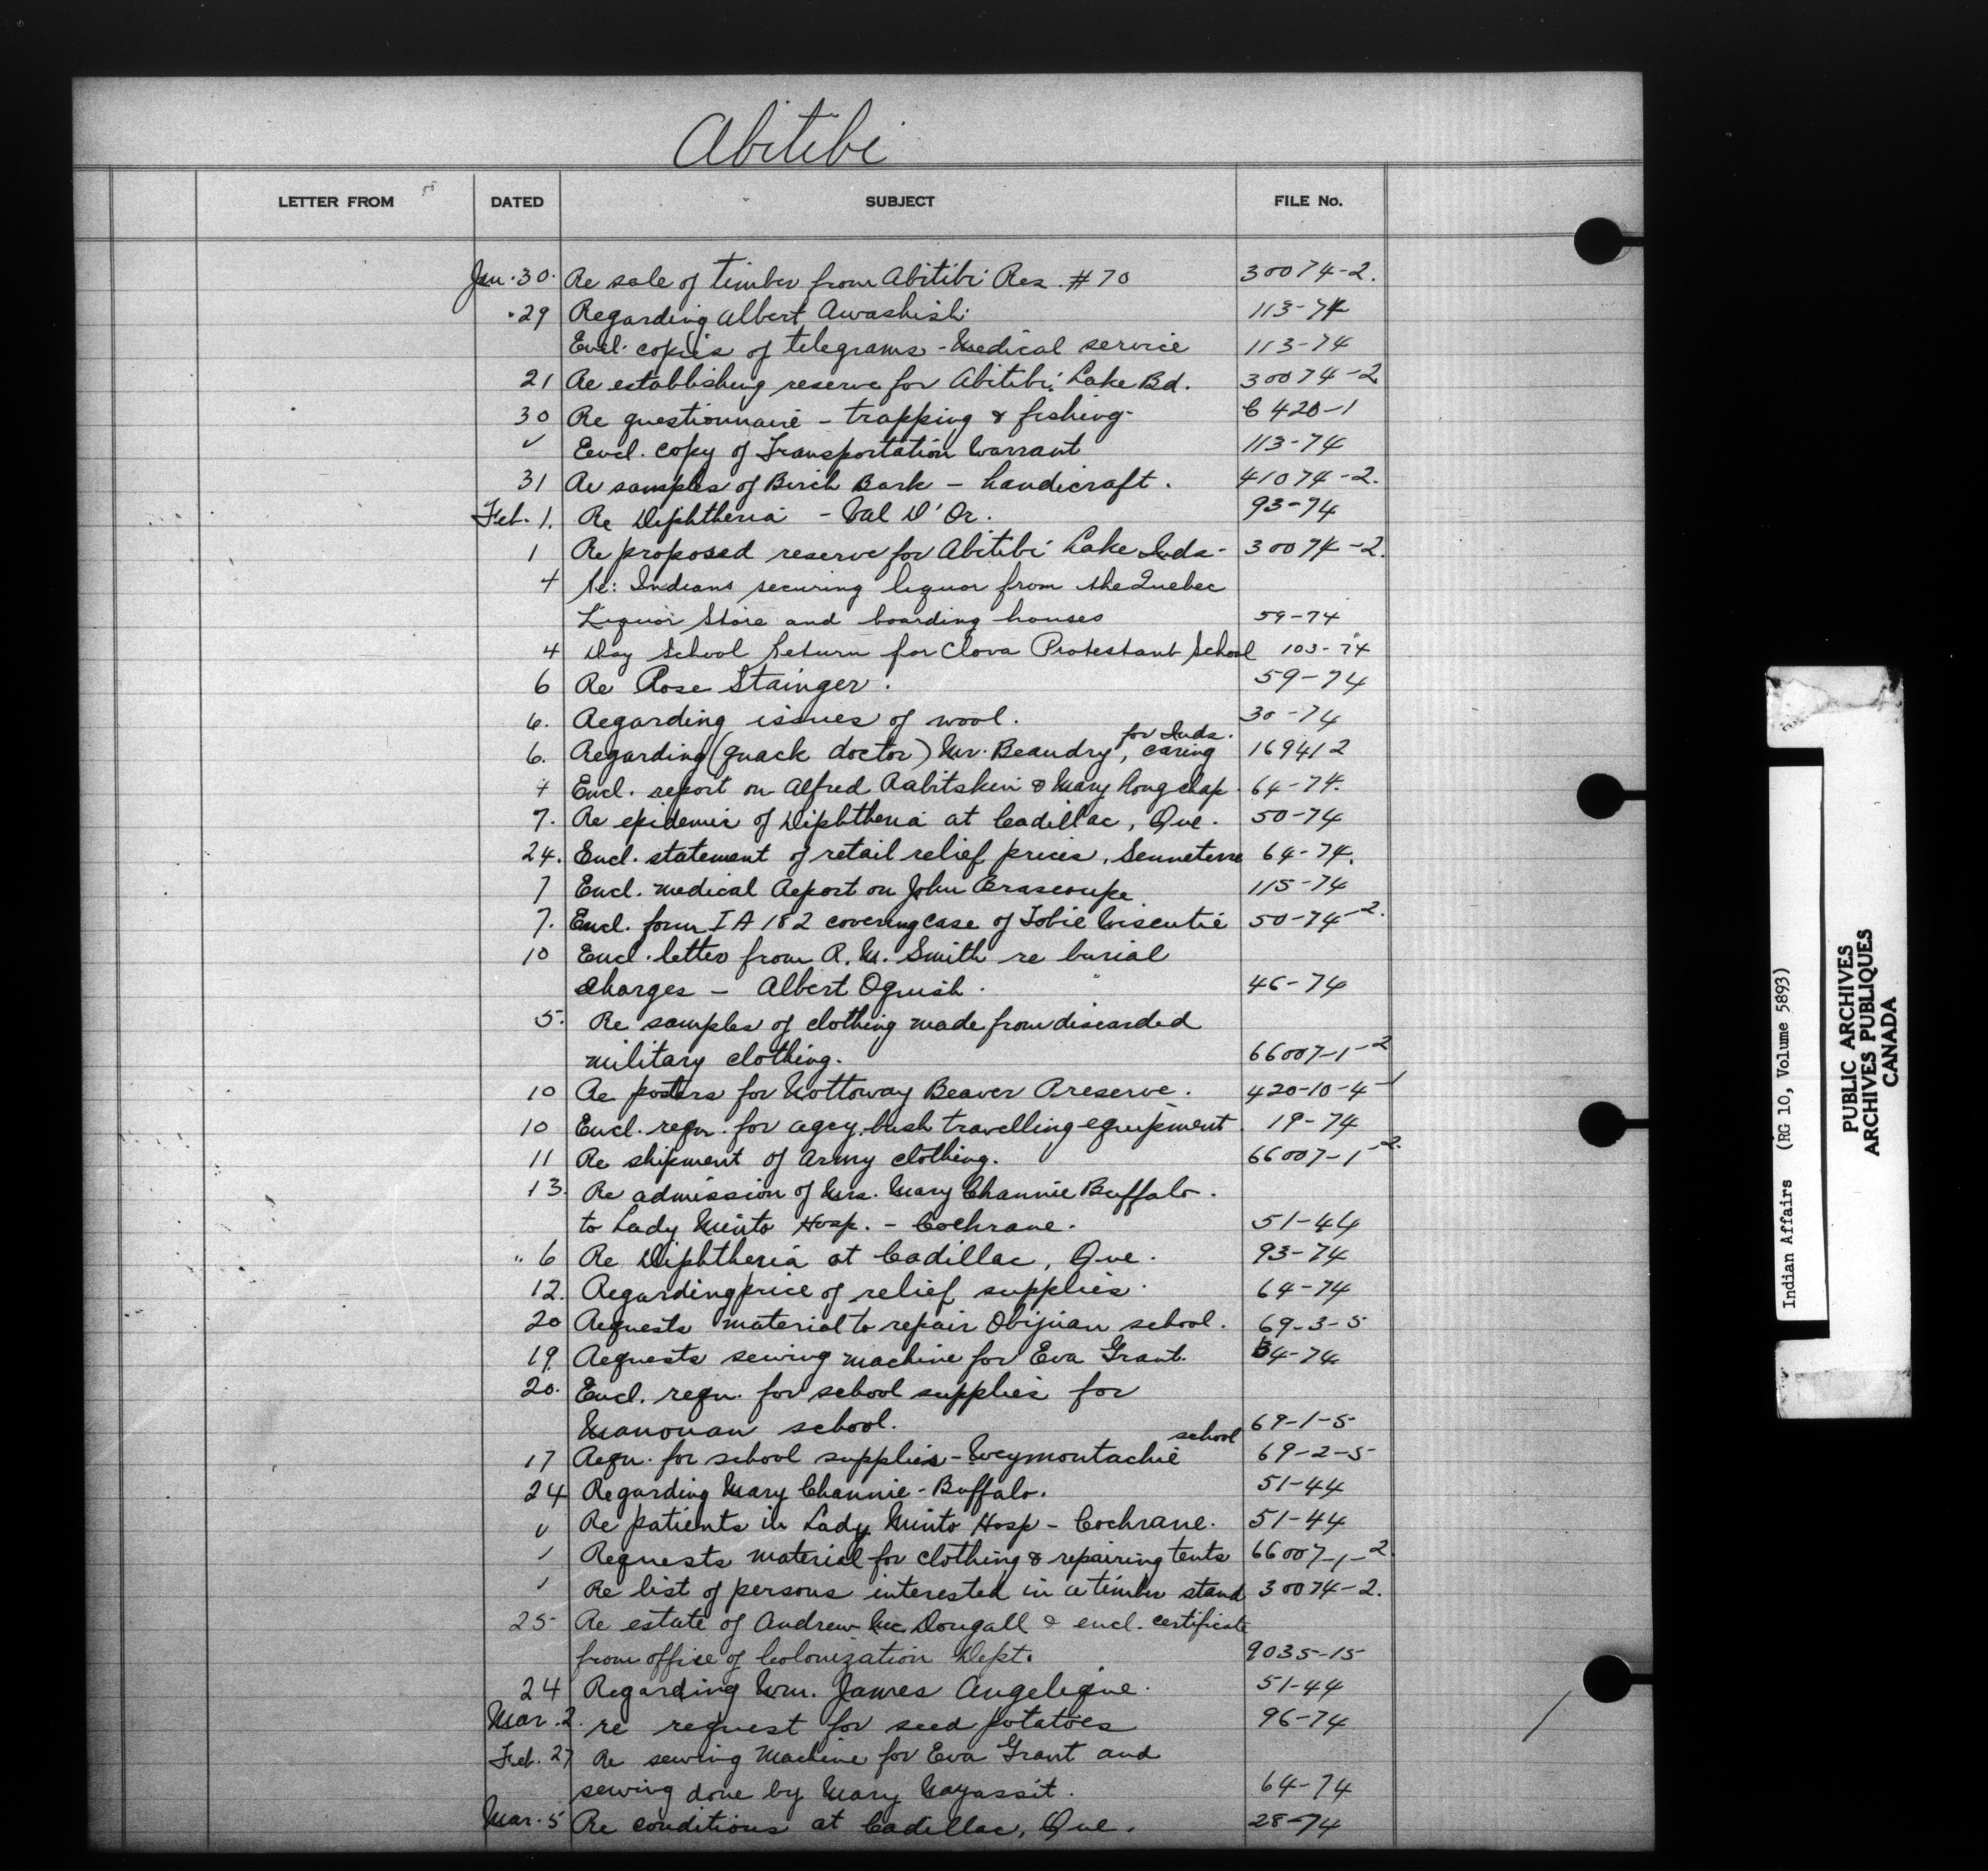 Abitibi
LETTER FROM DATED SUBJECT FILE No.
Jan. 30. Re sale of timber from Abitibi Res. #70 30074-2.
29 Regarding Albert Awashish 113-74
Encl. copies of telegrams - Medical service 113-74
21 Re establishing reserve for Abitibi Lake Bd. 30074-2
30 Re questionnaire - trapping & fishing 420-1
✓ Encl. copy of Transportation Warrant 113-74
31 Re samples of Birch Bark - handicraft. 41074-2.
Feb. 1. Re Diphtheria - Val D'Or. 93-74
1 Re proposed reserve for Abitibi Lake Inds. 30074-2.
4 Re: Indians securing liquor from the Quebec
Liquor Store and boarding houses 59-74
4 Day School Return for Clova Protestant School 103-74
6 Re Rose Stainger. 59-74
6. Regarding issues of wool. 30-74
for Inds.
6. Regarding (quack doctor) Mr. Beaudry, caring 169412
4 Encl. report on Alfred Rabitskin & Mary 64-74.
7. Re epidemic of Diphtheria at Cadillac, Que. 50-74
24. Encl. statement of retail relief prices, Senneterre 64-74.
7 Encl. medical Report on John Brascoupe 115-74
7. Encl. form I A 182 covering case of Tobie Wiscutie 50-74-2.
10 Encl. letter from R. M. Smith re burial
charges - Albert Oguish. 46-74
5. Re samples of clothing made from discarded
military clothing. 66007-1-2
10 Re posters for Nottoway Beaver Preserve. 420-10-4-1
10 Encl. reqn. for agcy. bush travelling equipment. 19-74
11 Re shipment of Army clothing. 66007-1-2.
13. Re admission of Mrs. Mary Channie Buffalo.
to Lady Minto Hosp. - Cochrane. 51-44
" 6 Re Diphtheria at Cadillac, Que. 93-74
12. Regarding price of relief supplies. 64-74
20 Requests material to repair Obijuan school. 69-3-5
19. Requests sewing machine for Eva Grant. 64-74
20. Encl. reqn. for school supplies for
Manouan school. 69-1-5
school
17 Reqn. for school supplies - Weymontachie 69-2-5
24 Regarding Mary Channie - Buffalo. 51-44
✓ Re patients in Lady Minto Hosp - Cochrane. 51-44
✓ Requests material for clothing & repairing tents 66007-1-2.
✓ Re list of persons interested in a timber stand 30074-2.
25 Re estate of Andrew McDougall & encl. certificate
from office of Colonization Dept. 9035-15
24 Regarding Wm. James Angelique. 51-44
Mar. 2. re request for seed potatoes 96-74
Feb. 27 Re sewing machine for Eva Grant and
sewing done by Mary Wayassit. 64-74
Mar. 5 Re conditions at Cadillac, Que. 28-74
Indian Affairs (RG 10, Volume 5893)
PUBLIC ARCHIVES
ARCHIVES PUBLIQUES
CANADA